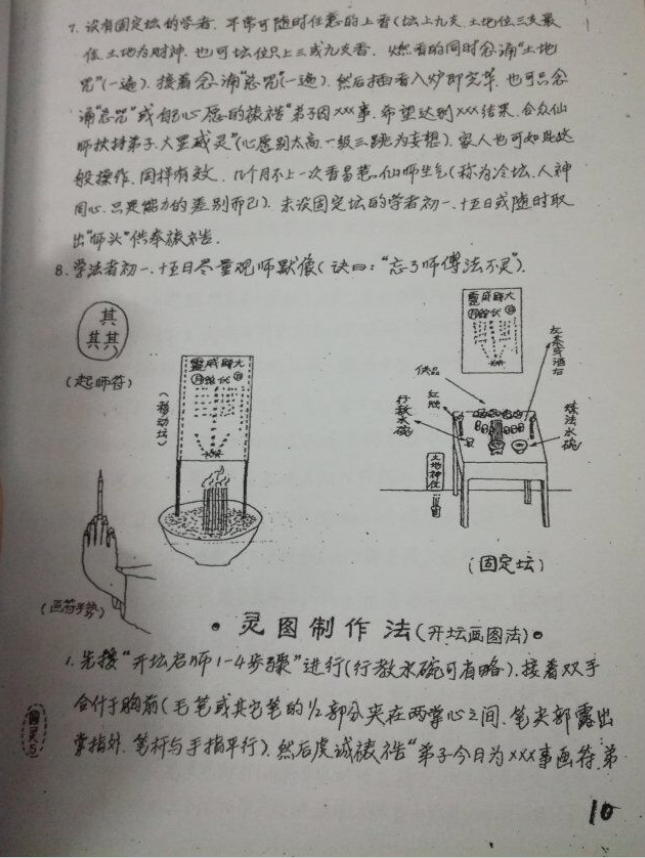 7. 设有固定坛的学者. 平常可随时任意的上香(坛上九支.土地位三支最
低.土地为财神.也可坛位只上三或九支香.燃香的同时念诵“土地
咒”(一遍).接着念诵“总咒”(一遍).然后插香入炉即完毕.也可只念
诵“总咒”或自己心愿的祷祷“弟子因xxx事.希望达到xxx结果.合众仙
师扶持弟子.大显威灵”(心愿别太高.一级三跳为妄想).家人也可如此这
般操作.同样有效.几个月不上一次香易惹仙师生气(称为冷坛.人神
同心.只是能力的差别而已).未设固定坛的学者初一、十五日或随时取
出“师头”供奉祷祷.
8. 学法者初一、十五日尽量观师默像(诀曰:“忘了师傅法不灵”).
其
其其
(起师符)
大显威灵
(移动坛)
(画符手势)
大显威灵
供品
红烛
行教水碗
左茶
炼法水碗
土地神位
(固定坛)
•灵图制作法(开坛画图法)•
1. 先按“开坛名师1-4步骤”进行(行教水碗可省略).接着双手
合什于胸前(毛笔或其它笔的1/2部分夹在两掌心之间.笔尖部露出
掌指外.笔杆与手指平行).然后虔诚祷祷“弟子今日为xxx事画符.弟
10